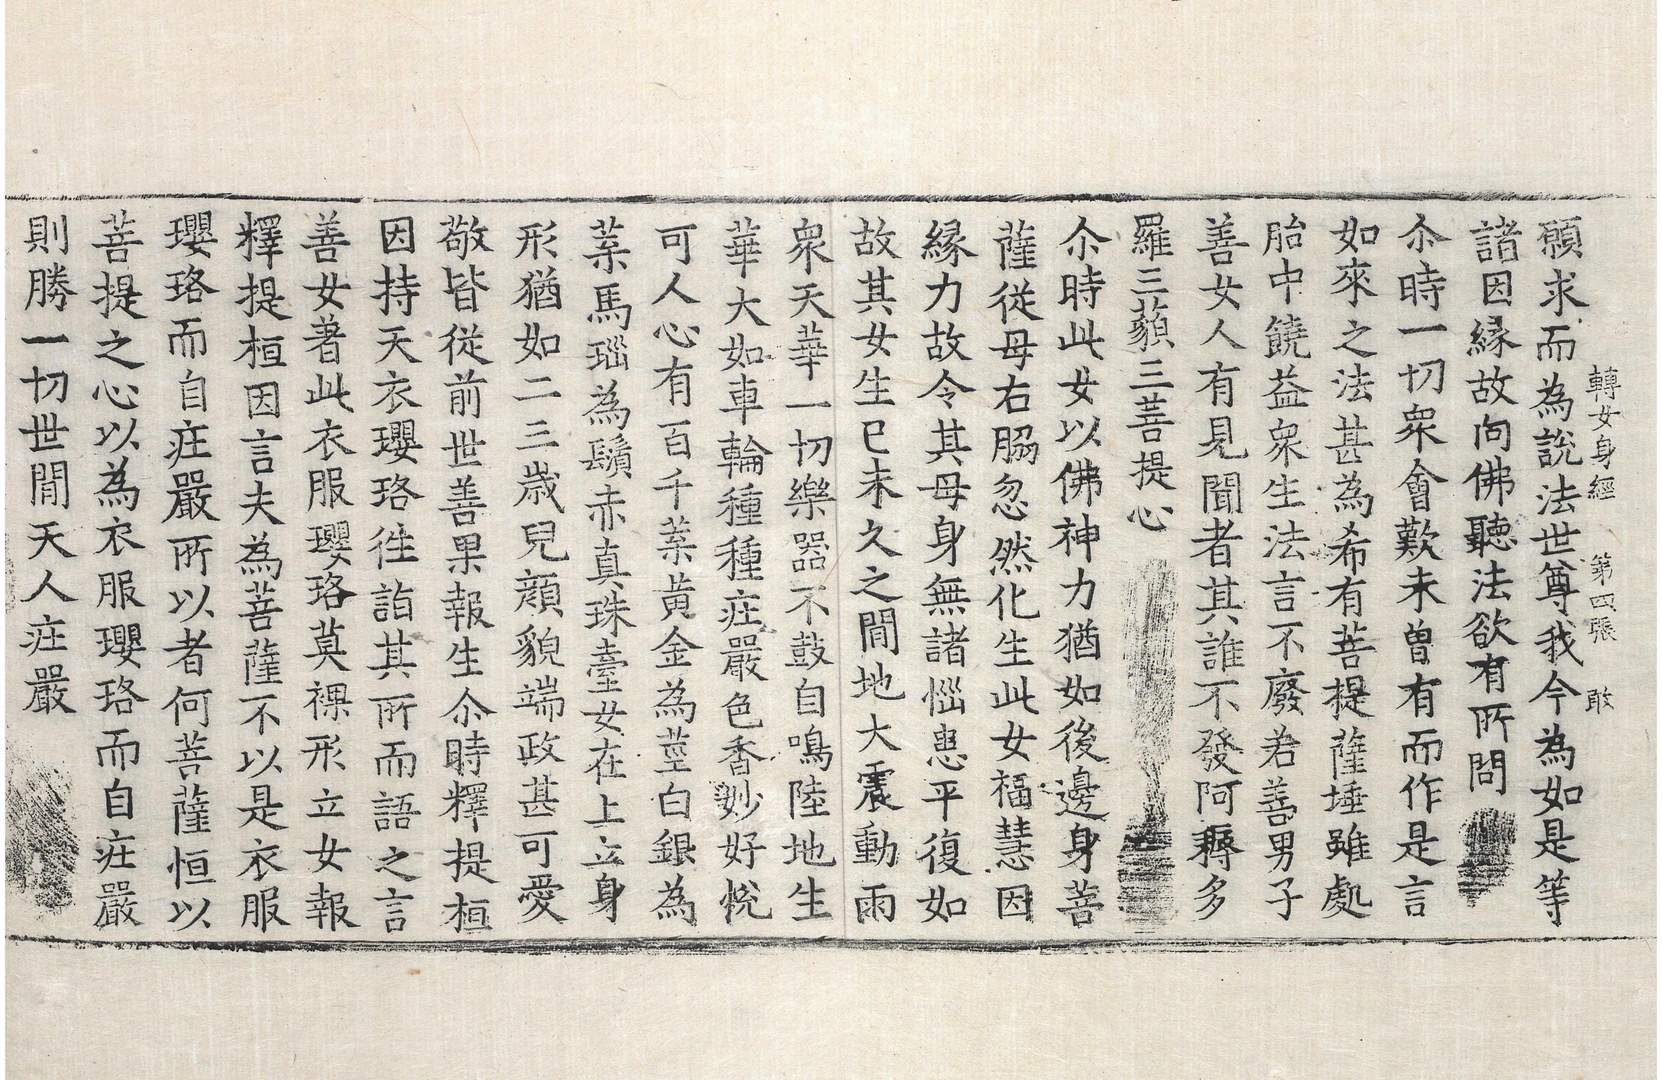 轉女身經 第四張 敢
願求而為說法世尊我今為如是等
諸因縁故向佛聽法欲有所問
尒時一切衆會歎未曽有而作是言
如來之法甚為希有菩提薩埵雖處
胎中饒益衆生法言不廢若善男子
善女人有見聞者其誰不發阿耨多
羅三藐三菩提心
尒時此女以佛神力猶如後邊身菩
薩從母右脇忽然化生此女福慧因
縁力故令其母身無諸惱患平復如
故其女生已未久之閒地大震動雨
衆天華一切樂器不鼓自鳴陸地生
華大如車輪種種疘嚴色香妙好悅
可人心有百千葉黃金為莖白銀為
葉馬瑙為鬚赤真珠臺女在上立身
形猶如二三歳兒顔貌端政甚可愛
敬皆從前世善果報生尒時釋提桓
因持天衣瓔珞徃詣其所而語之言
善女著此衣服瓔珞莫裸形立女報
釋提桓因言夫為菩薩不以是衣服
瓔珞而自疘嚴所以者何菩薩恒以
菩提之心以為衣服瓔珞而自疘嚴
則勝一切世閒天人疘嚴